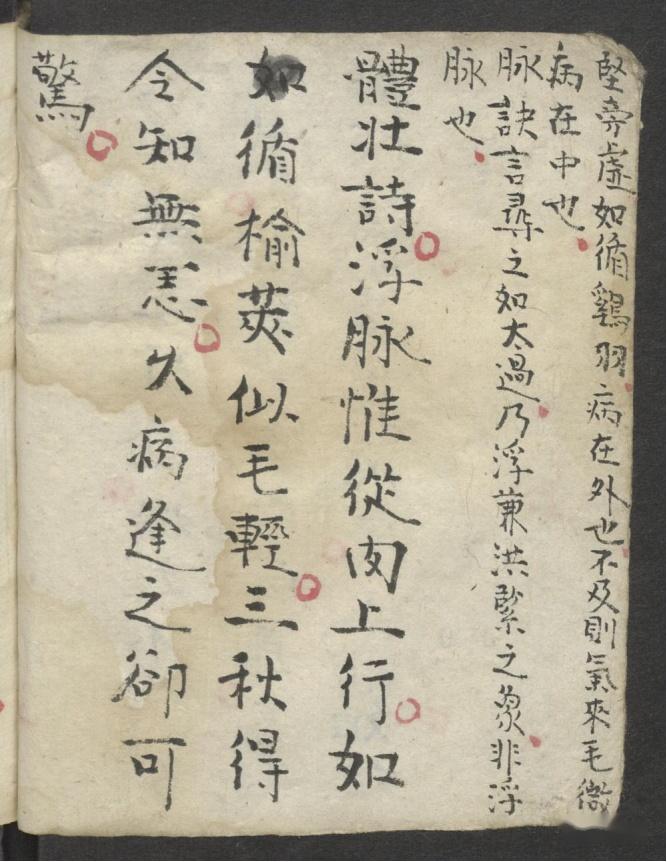 堅旁虛如循鷄羽病在外也不及則氣來毛微
病在中也
脉訣言尋之如太過乃浮兼洪緊之象非浮
脉也
體壯詩浮脉惟從肉上行如
如循榆莢似毛輕三秋得
令知無恙久病逢之卻可
驚